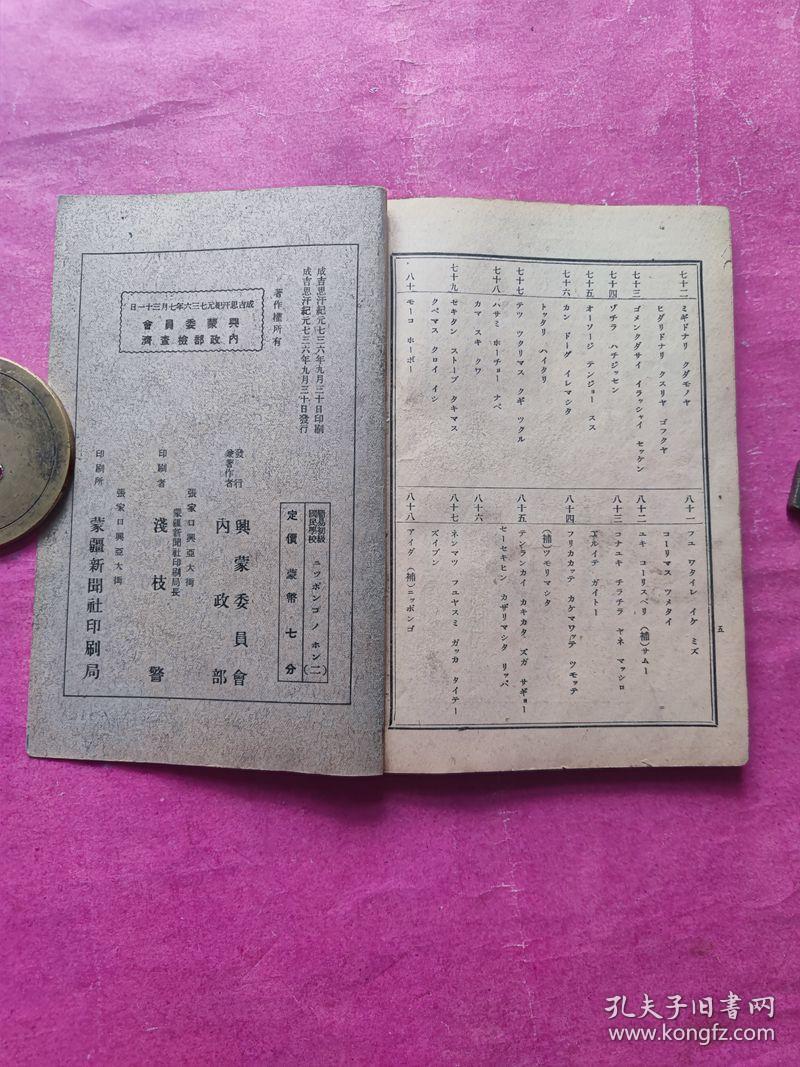 七十二 ミギドナリ クダモノヤ
ヒダリドナリ クスリヤ ゴフクヤ
七十三 ゴメンクダサイ イラッシャイ セッケン
七十四 ゾチラ ハチジッセン
七十五 オーソージ テンジョー スス
七十六 カン ドーグ イレマシタ
トッタリ ハイタリ
七十七 テツ ツクリマス クギ ツクル
七十八 ハサミ ホーチョー ナベ
カマ スキ クワ
七十九 セキタン ストーブ タキマス
クベマス クロイ イシ
八十 モーコ ホーボー
八十一 フユ ワタイレ イケ ミズ
コーリマス ツメタイ
八十二 ユキ コーリスベリ (補)サムー
八十三 コナユキ チラチラ ヤネ マッシロ
エルイテ ガイトー
八十四 フリカカッテ カケマワッテ ツモッテ
(補)ツモリマシタ
八十五 テンランカイ カキカタ ズガ サギョー
セーセキヒン カザリマシタ リッパ
八十六
八十七 ネンマツ フユヤスミ ガッカ タイテー
ズイブン
八十八 アイダ (補)ニッポンゴ
五
成吉思汗紀元七三六年九月二十日印刷
成吉思汗紀元七三六年九月三十日發行
著作權所有
成吉思汗紀元七三六年七月三十一日
興蒙委員會
內政部檢查濟
簡易初級
國民學校
ニッポンゴノ ホン(二)
定價 蒙幣 七分
發行
兼著作者
興蒙委員會
內政部
張家口興亞大街
蒙疆新聞社印刷局長
印刷者 淺枝 警
張家口興亞大街
印刷所 蒙疆新聞社印刷局
孔夫子旧书网
www.kongfz.com